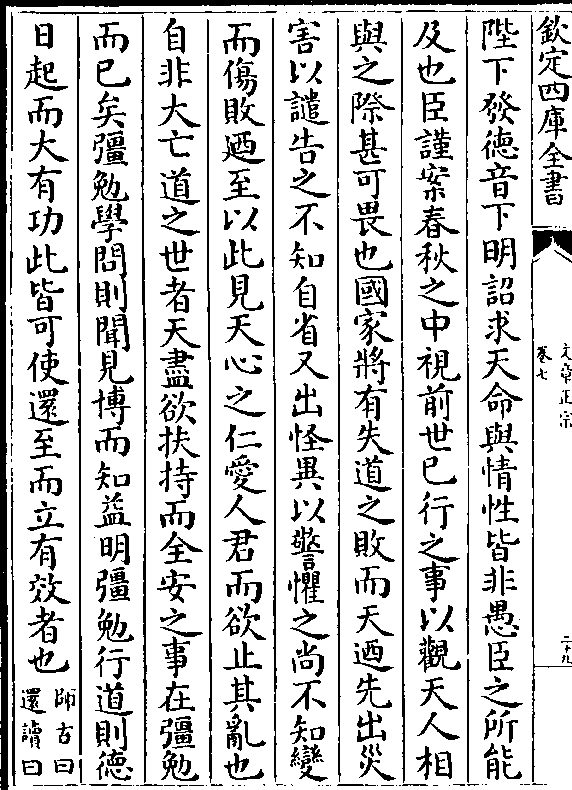 欽定四庫全書
文章正宗
卷七
二十九
陛下發德音下明詔求天命與情性皆非愚臣之所能
及也臣謹案春秋之中視前世已行之事以觀天人相
與之際甚可畏也國家將有失道之敗而天迺先出災
害以譴告之不知自省又出怪異以警懼之尚不知變
而傷敗迺至以此見天心之仁愛人君而欲止其亂也
自非大亡道之世者天盡欲扶持而全安之事在彊勉
而已矣彊勉學問則聞見博而知益明彊勉行道則德
日起而大有功此皆可使還至而立有效者也
師古曰
還讀曰